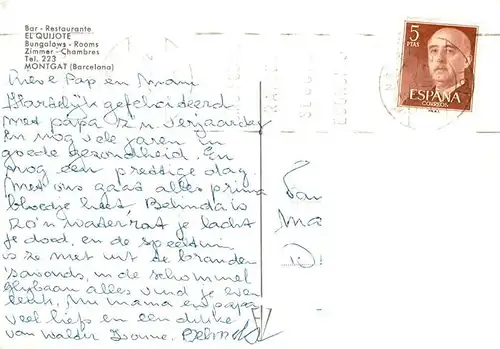 Bar - Restaurante
EL QUIJOTE
Bungalows - Rooms
Zimmer - Chambres
Tel. 223
MONTGAT (Barcelona)
5
PTAS
ESPAÑA
CORREOS
Lieve Pap en Mam
Hartelijk gefeliciteerd
met papa z'n verjaardag
En nog vele jaren in
goede gezondheid. En
nog een prettige dag.
Met ons gaat alles prima
bloedje heet, Belinda is
zo'n waterrat je lacht
je dood, en de speeltuin
is ze met uit de branden
's avonds, in de schommel
glijbaan alles vind je even
leuk, Nu mama en papa
veel liefs en een dikke
van Walter Ivonne. Belinda